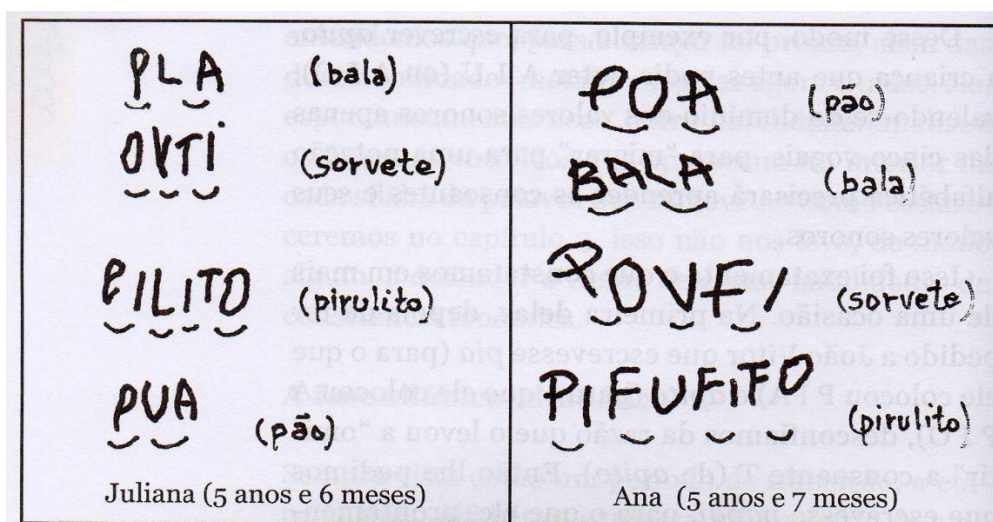 PLA (bala)
OVTi (sorvete)
PILITO (pirulito)
PUA (pão)
Juliana (5 anos e 6 meses)
POA (pão)
BALA (bala)
POVEI (sorvete)
PIFUFITO (pirulito)
Ana (5 anos e 7 meses)